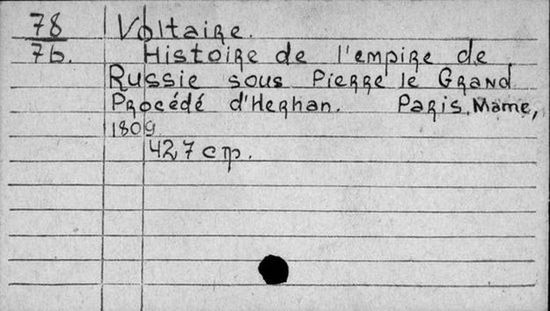 78 Voltaire.
76. Histoire de l'empire de
Russie sous Pierre le Grand
Procédé d'Herhan. Paris, Mame,
1809
427 стр.